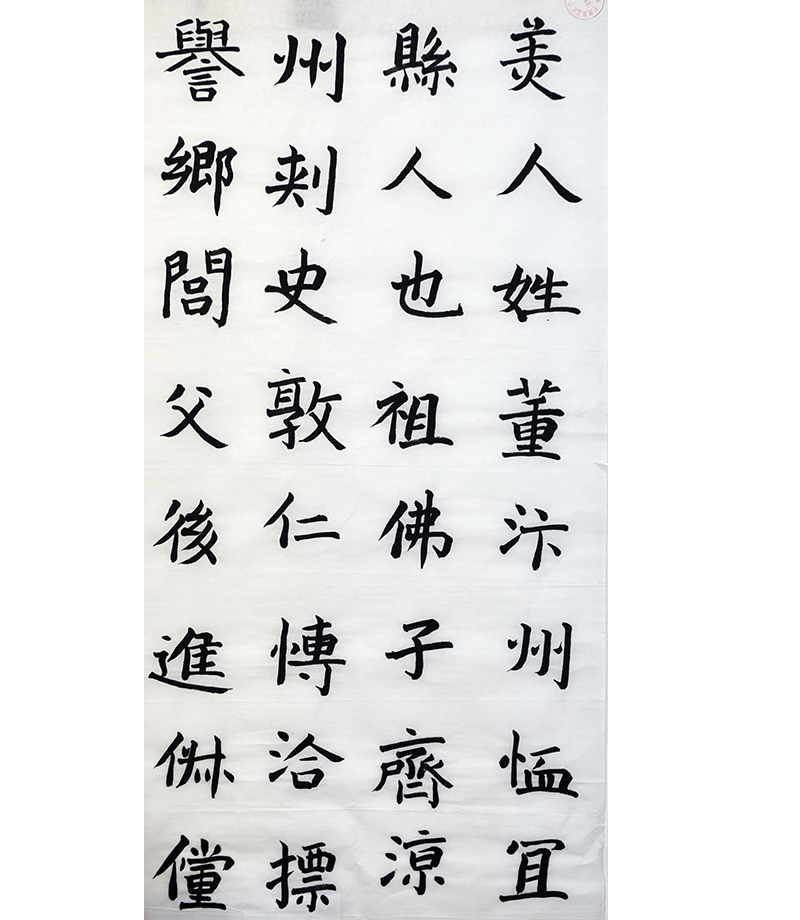 美人姓董汴州恤冝
縣人也祖佛子齊涼
州刾史敦仁愽洽摽
譽鄉閭父後進俶儻